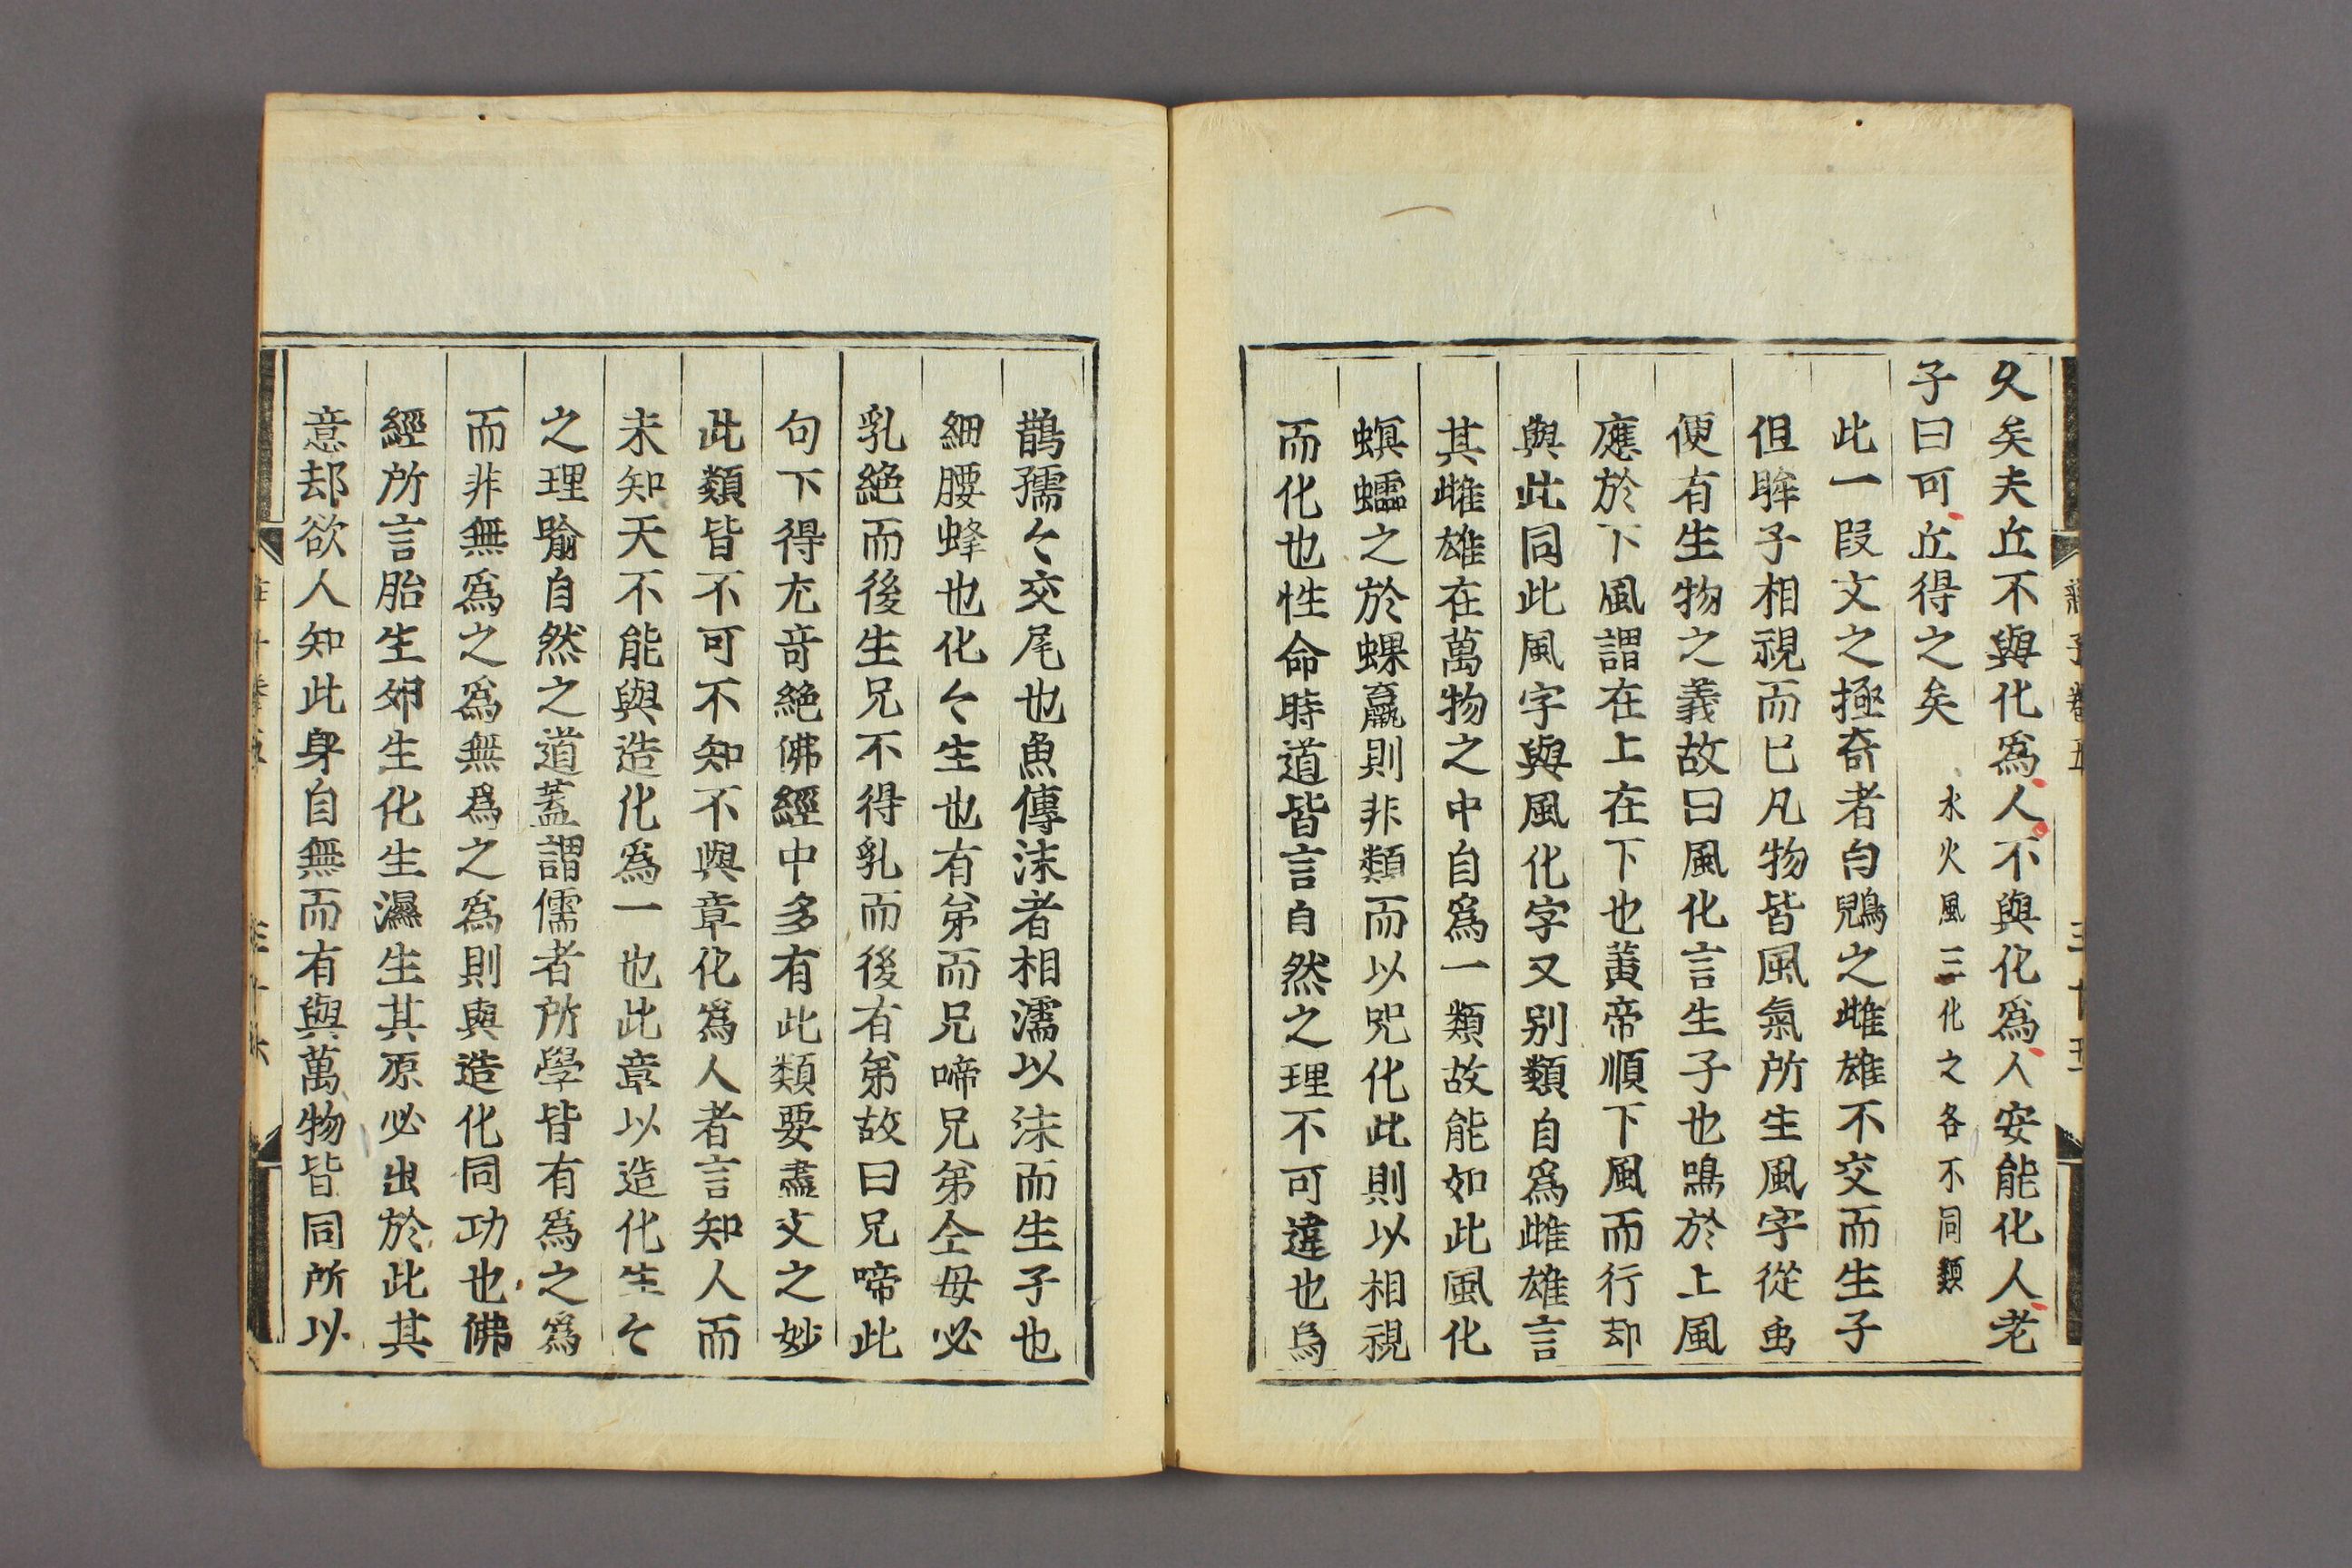 久矣夫丘不與化爲人不與化爲人安能化人老
子曰可丘得之矣　水火風三化之各不同類
此一段文之極奇者白鶂之雌雄不交而生子
但眸子相視而已凡物皆風氣所生風字從虫
便有生物之義故曰風化言生子也鳴於上風
應於下風謂在上在下也黃帝順下風而行却
與此同此風字與風化字又别類自爲雌雄言
其雌雄在萬物之中自爲一類故能如此風化
螟蠕之於蜾蠃則非類而以呪化此則以相視
而化也性命時道皆言自然之理不可違也烏
鵲孺々交尾也魚傳沫者相濡以沫而生子也
細腰蜂也化々生也有弟而兄啼兄弟仝母必
乳絶而後生兄不得乳而後有弟故曰兄啼此
句下得尤竒絶佛經中多有此類要盡文之妙
此類皆不可不知不與章化爲人者言知人而
未知天不能與造化爲一也此章以造化生々
之理喻自然之道蓋謂儒者所學皆有爲之爲
而非無爲之爲無爲之爲則與造化同功也佛
經所言胎生卵生化生濕生其原必出於此其
意却欲人知此身自無而有與萬物皆同所以